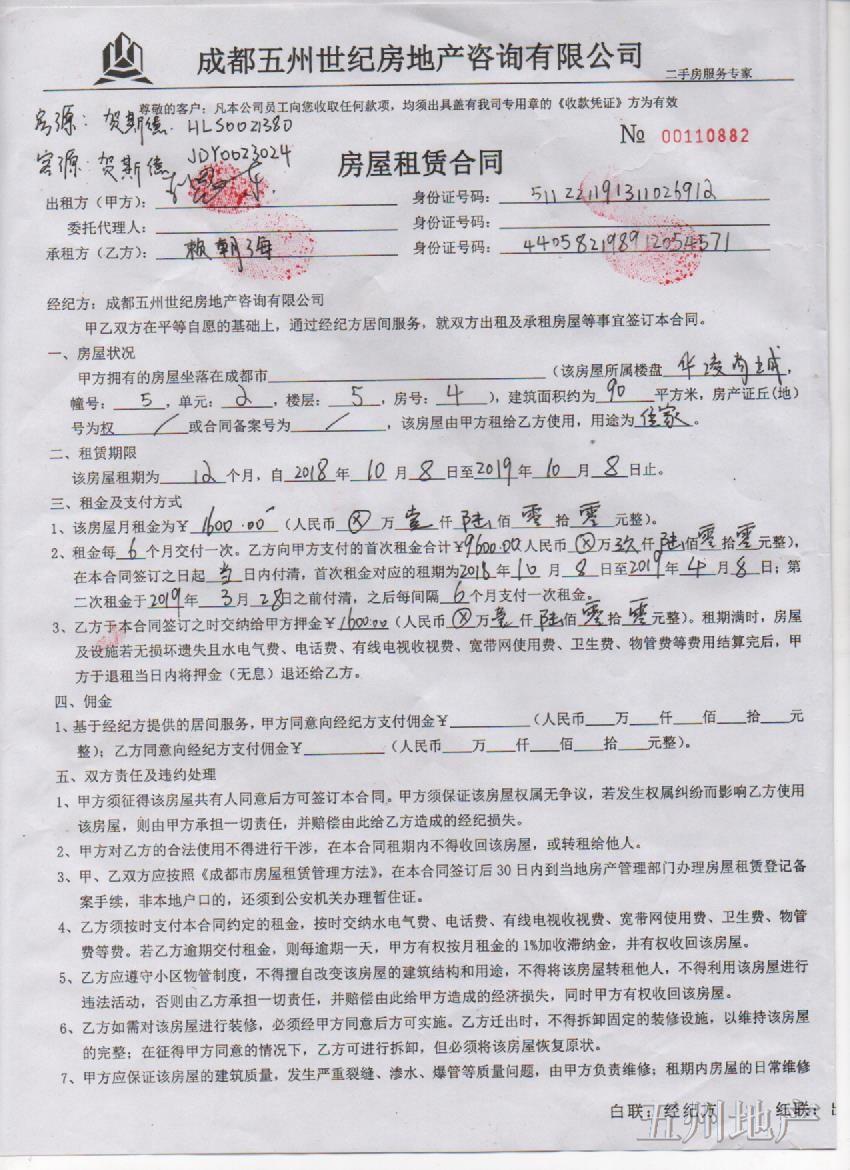 成都五州世纪房地产咨询有限公司
二手房服务专家
尊敬的客户：凡本公司员工向您收取任何款项，均须出具盖有我司专用章的《收款凭证》方为有效
房源：贺斯德 HLS0021380
客源：贺斯德 JDY0023024
№ 00110882
房屋租赁合同
出租方（甲方）： 身份证号码：
委托代理人： 身份证号码：
承租方（乙方）：赖朝海 身份证号码：440582198912054571
经纪方：成都五州世纪房地产咨询有限公司
甲乙双方在平等自愿的基础上，通过经纪方居间服务，就双方出租及承租房屋等事宜签订本合同。
一、房屋状况
甲方拥有的房屋坐落在成都市（该房屋所属楼盘 华凌尚城，
幢号：5，单元：2，楼层：5，房号：4），建筑面积约为90平方米，房产证丘(地)
号为权 / 或合同备案号为 / ，该房屋由甲方租给乙方使用，用途为住家。
二、租赁期限
该房屋租期为12个月，自2018年10月8日至2019年10月8日止。
三、租金及支付方式
1、该房屋月租金为￥1600.00（人民币⊗万壹仟陆佰零拾零元整）。
2、租金每6个月交付一次。乙方向甲方支付的首次租金合计￥9600.00人民币⊗万玖仟陆佰零拾零元整），
在本合同签订之日起当日内付清，首次租金对应的租期为2018年10月8日至2019年4月8日；第
二次租金于2019年3月28日之前付清，之后每间隔6个月支付一次租金。
3、乙方于本合同签订之时交纳给甲方押金￥1600.00（人民币⊗万壹仟陆佰零拾零元整）。租期满时，房屋
及设施若无损坏遗失且水电气费、电话费、有线电视收视费、宽带网使用费、卫生费、物管费等费用结算完后，甲
方于退租当日内将押金（无息）退还给乙方。
四、佣金
1、基于经纪方提供的居间服务，甲方同意向经纪方支付佣金￥（人民币 万 仟 佰 拾 元
整）；乙方同意向经纪方支付佣金￥（人民币 万 仟 佰 拾 元整）。
五、双方责任及违约处理
1、甲方须征得该房屋共有人同意后方可签订本合同。甲方须保证该房屋权属无争议，若发生权属纠纷而影响乙方使用
该房屋，则由甲方承担一切责任，并赔偿由此给乙方造成的经纪损失。
2、甲方对乙方的合法使用不得进行干涉，在本合同租期内不得收回该房屋，或转租给他人。
3、甲、乙双方应按照《成都市房屋租赁管理方法》，在本合同签订后30日内到当地房产管理部门办理房屋租赁登记备
案手续，非本地户口的，还须到公安机关办理暂住证。
4、乙方须按时支付本合同约定的租金，按时交纳水电气费、电话费、有线电视收视费、宽带网使用费、卫生费、物管
费等费。若乙方逾期交付租金，则每逾期一天，甲方有权按月租金的1%加收滞纳金，并有权收回该房屋。
5、乙方应遵守小区物管制度，不得擅自改变该房屋的建筑结构和用途，不得将该房屋转租他人，不得利用该房屋进行
违法活动，否则由乙方承担一切责任，并赔偿由此给甲方造成的经济损失，同时甲方有权收回该房屋。
6、乙方如需对该房屋进行装修，必须经甲方同意后方可实施。乙方迁出时，不得拆卸固定的装修设施，以维持该房屋
的完整；在征得甲方同意的情况下，乙方可进行拆卸，但必须将该房屋恢复原状。
7、甲方应保证该房屋的建筑质量，发生严重裂缝、渗水、爆管等质量问题，由甲方负责维修；租期内房屋的日常维修
白联：经纪方 红联：出
五州地产